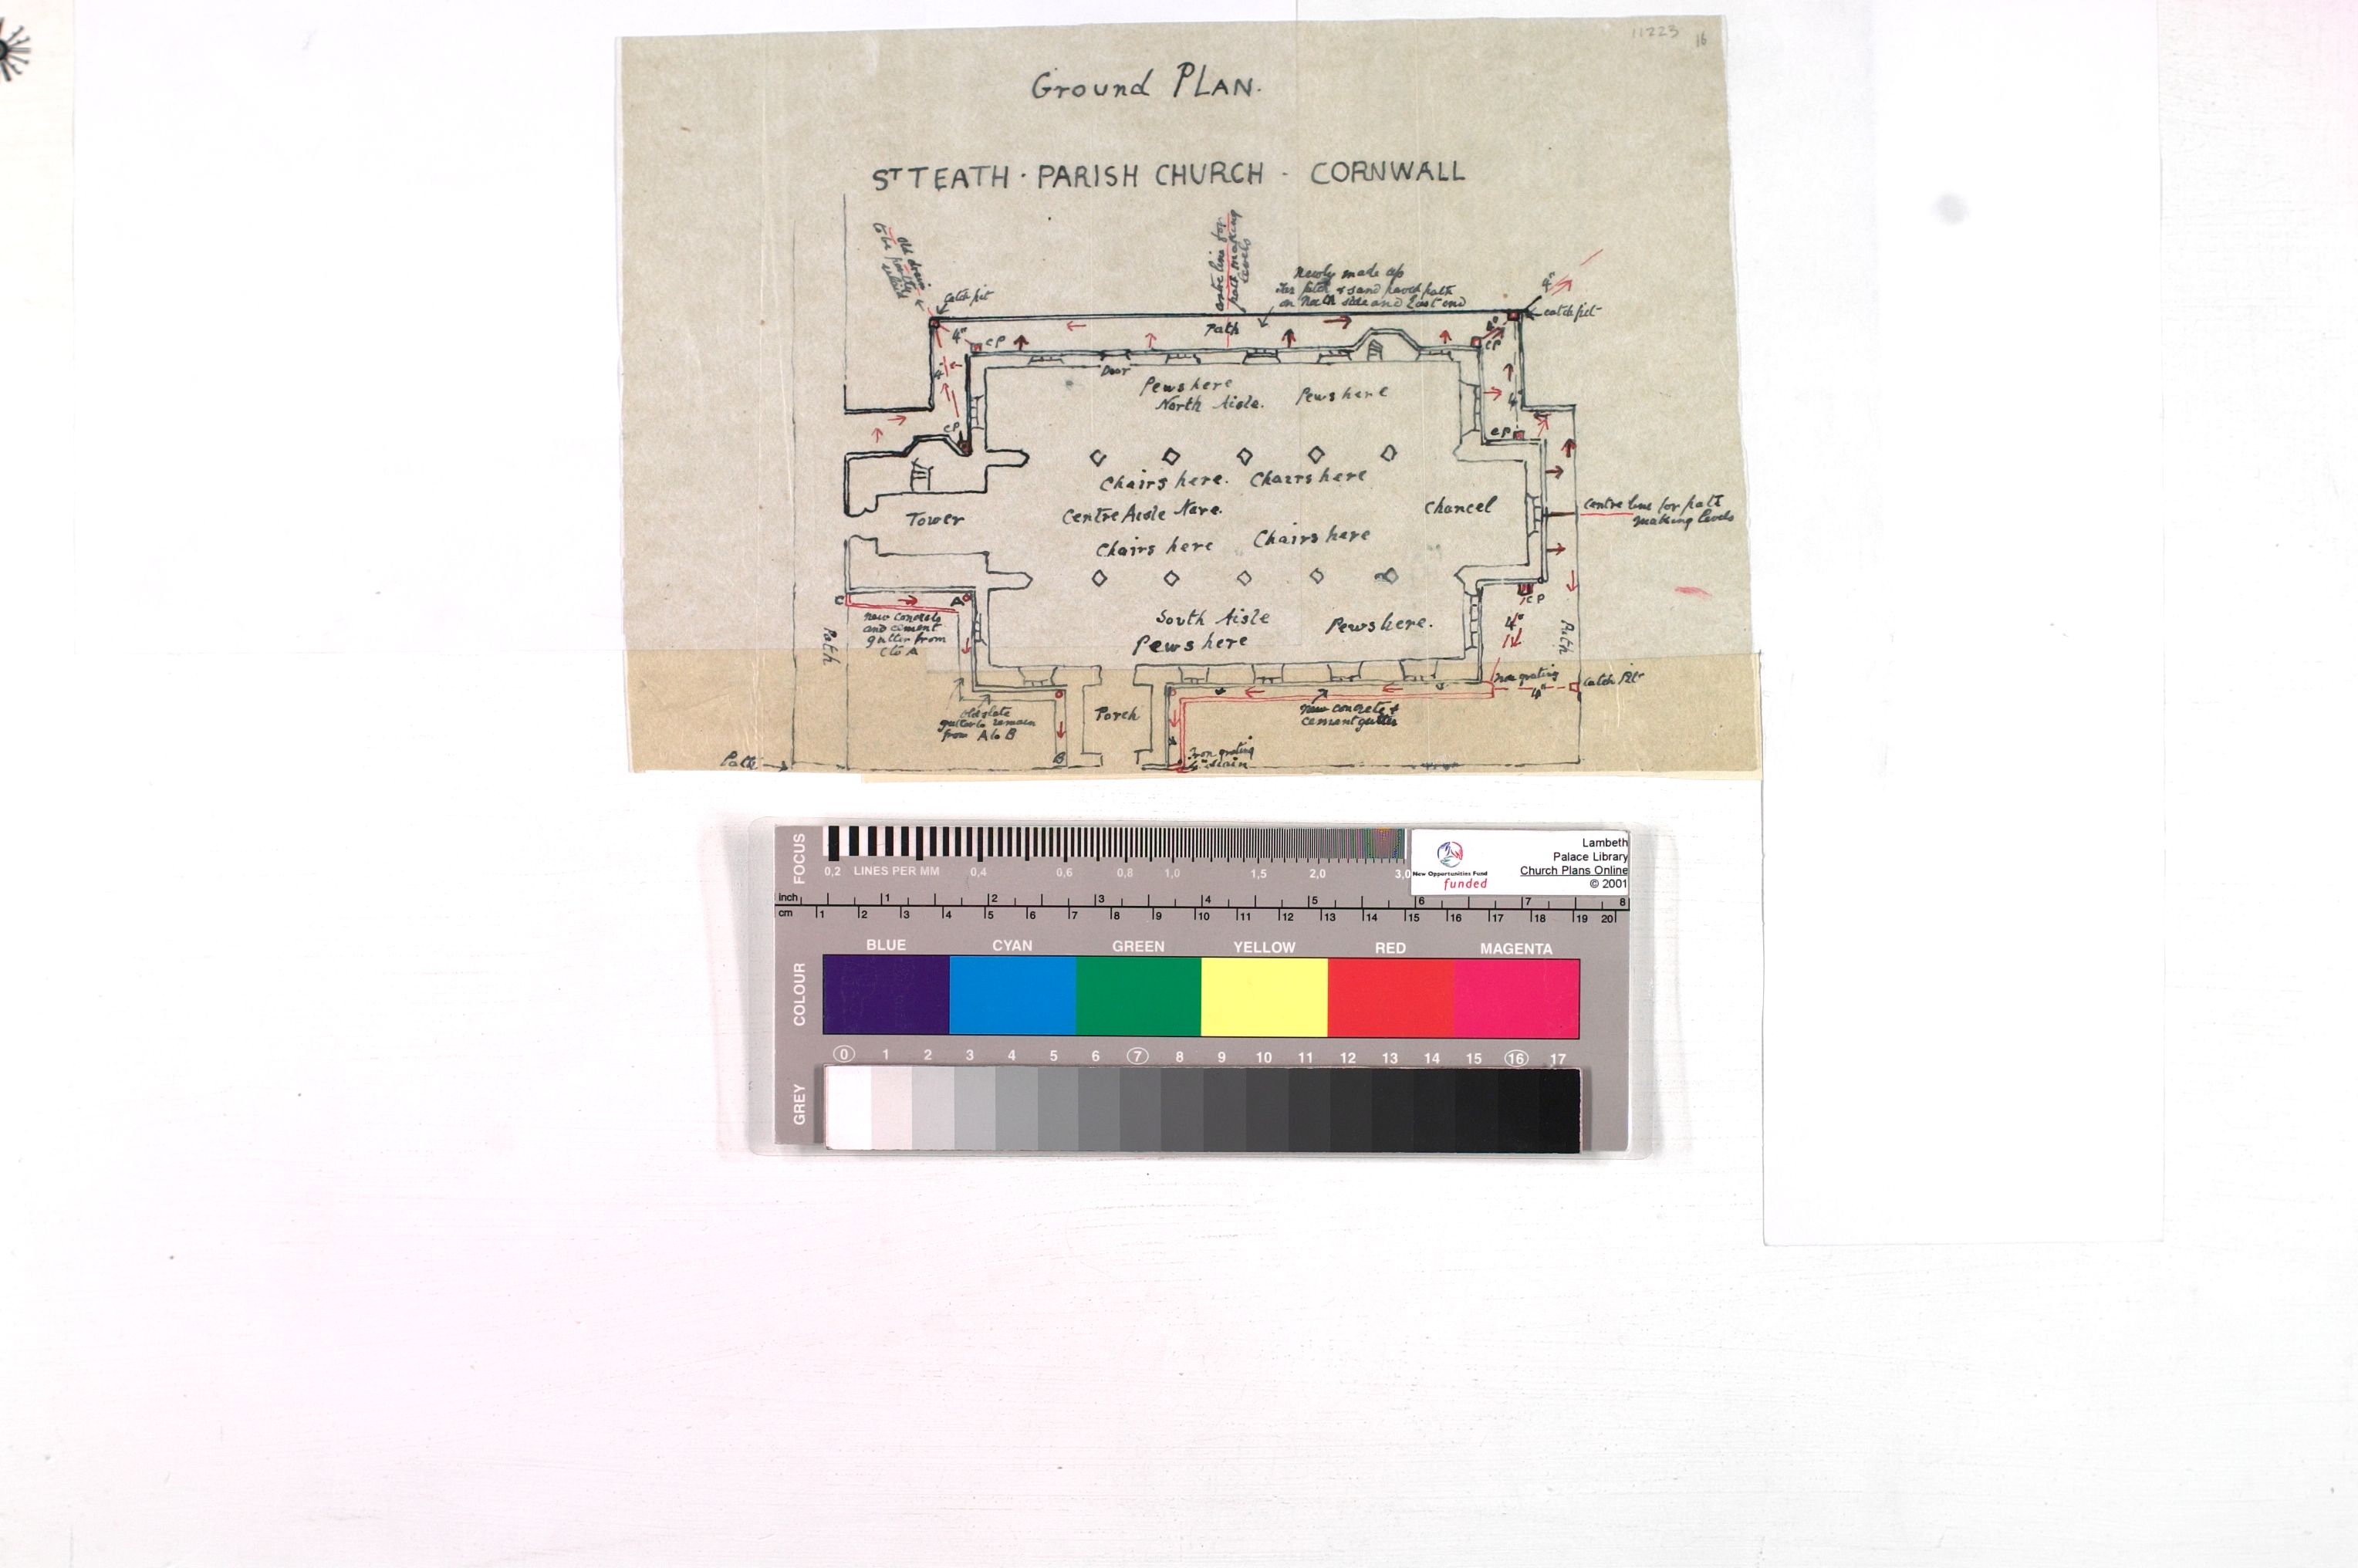 11223
16
Ground PLAN.
ST TEATH · PARISH CHURCH - CORNWALL
old drain
to be partly
relaid
centre line for
path making
levels
Newly made up
Tar pitch & sand paved path
on North side and East end
4"
catch pit
catch pit
Path
4"
CP
4"
CP
Door
4"
4"
Pews here
North Aisle.
Pews here
CP
CP
Chairs here.
Chairs here
Tower
Centre Aisle Nave.
Chancel
centre line for path
making levels
Chairs here
Chairs here
C
A
CP
new concrete
and cement
gutter from
C to A
South Aisle
Pews here
Pews here.
4"
Path
Path
Iron grating
4"
Catch Pit
old slate
gutter to remain
from A to B
Porch
new concrete &
cement gutter
B
Iron grating
4" drain
Path
FOCUS
0,2 LINES PER MM 0,4 0,6 0,8 1,0 1,5 2,0 3,0
New Opportunities Fund
funded
Lambeth
Palace Library
Church Plans Online
© 2001
inch 1 2 3 4 5 6 7 8
cm 1 2 3 4 5 6 7 8 9 10 11 12 13 14 15 16 17 18 19 20
COLOUR
BLUE CYAN GREEN YELLOW RED MAGENTA
0 1 2 3 4 5 6 7 8 9 10 11 12 13 14 15 16 17
GREY